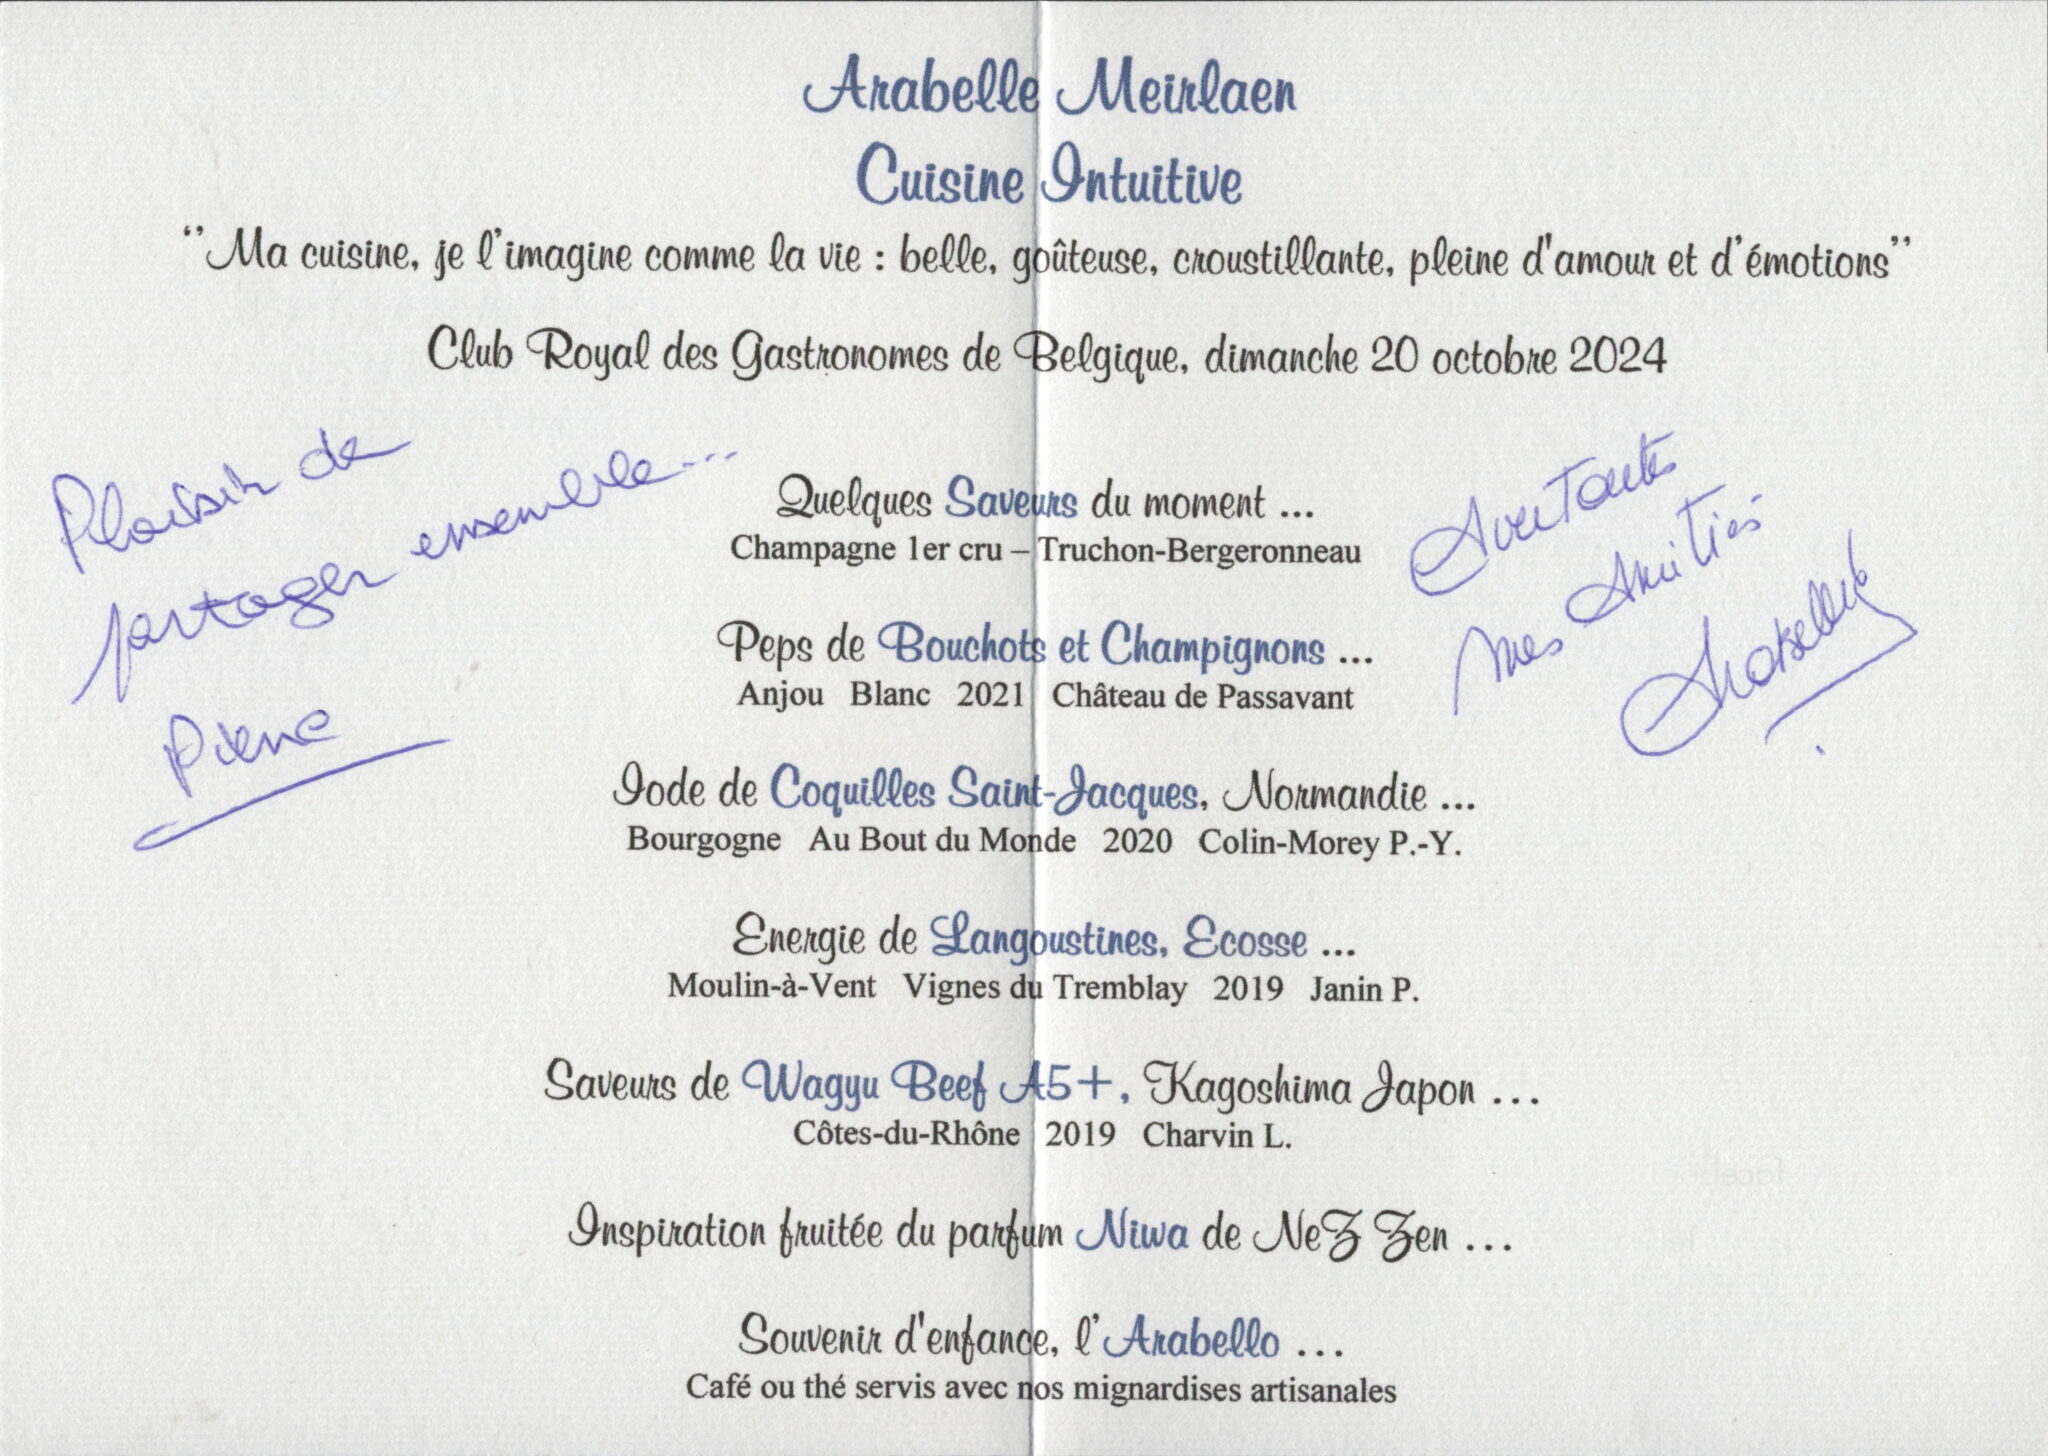 Arabelle Meirlaen
Cuisine Intuitive
‘’Ma cuisine, je l’imagine comme la vie : belle, goûteuse, croustillante, pleine d'amour et d’émotions’’
Club Royal des Gastronomes de Belgique, dimanche 20 octobre 2024
Plaisir de
partager ensemble...
Pierre
Avec toutes
mes Amitiés
Arabelle
Quelques Saveurs du moment ...
Champagne 1er cru – Truchon-Bergeronneau
Peps de Bouchots et Champignons ...
Anjou Blanc 2021 Château de Passavant
Iode de Coquilles Saint-Jacques, Normandie ...
Bourgogne Au Bout du Monde 2020 Colin-Morey P.-Y.
Energie de Langoustines, Ecosse ...
Moulin-à-Vent Vignes du Tremblay 2019 Janin P.
Saveurs de Wagyu Beef A5+, Kagoshima Japon ...
Côtes-du-Rhône 2019 Charvin L.
Inspiration fruitée du parfum Niwa de NeZ Zen ...
Souvenir d'enfance, l’Arabello ...
Café ou thé servis avec nos mignardises artisanales